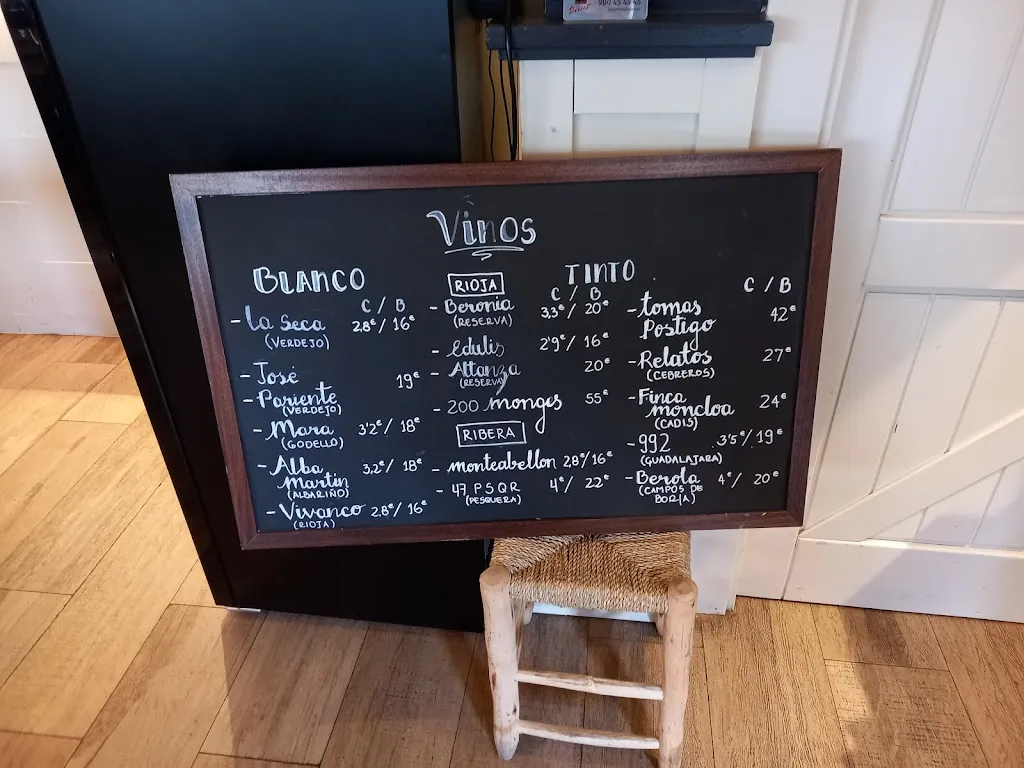 900 45 45 45
Vinos
BLANCO
C / B
- La Seca 2,8€/ 16€
(VERDEJO)
- José
- Pariente 19€
(VERDEJO)
- Mara 3'2€/ 18€
(GODELLO)
- Alba
Martin 3,2€/ 18€
(ALBARIÑO)
- Vivanco 2,8€/ 16€
(RIOJA)
TINTO
RIOJA
C / B
- Beronia 3,3€/ 20€
(RESERVA)
- Edulis 2'9€/ 16€
- Altanza 20€
(RESERVA)
- 200 monges 55€
RIBERA
- monteabellon 2,8€/16€
- 47 P.S.Q.R 4€/ 22€
(PESQUERA)
C / B
- tomas
Postigo 42€
- Relatos 27€
(CEBREROS)
- Finca
moncloa 24€
(CADIS)
- 992 3'5€/ 19€
(GUADALAJARA)
- Berola 4€/ 20€
(CAMPOS DE
BORJA)